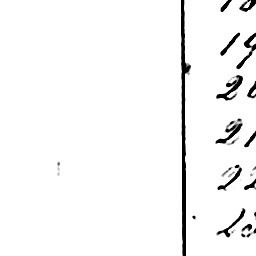 18
19
20
21
22
23